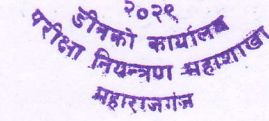 २०२९
डीनको कार्यालय
परीक्षा नियन्त्रण महाशाखा
महाराजगंज